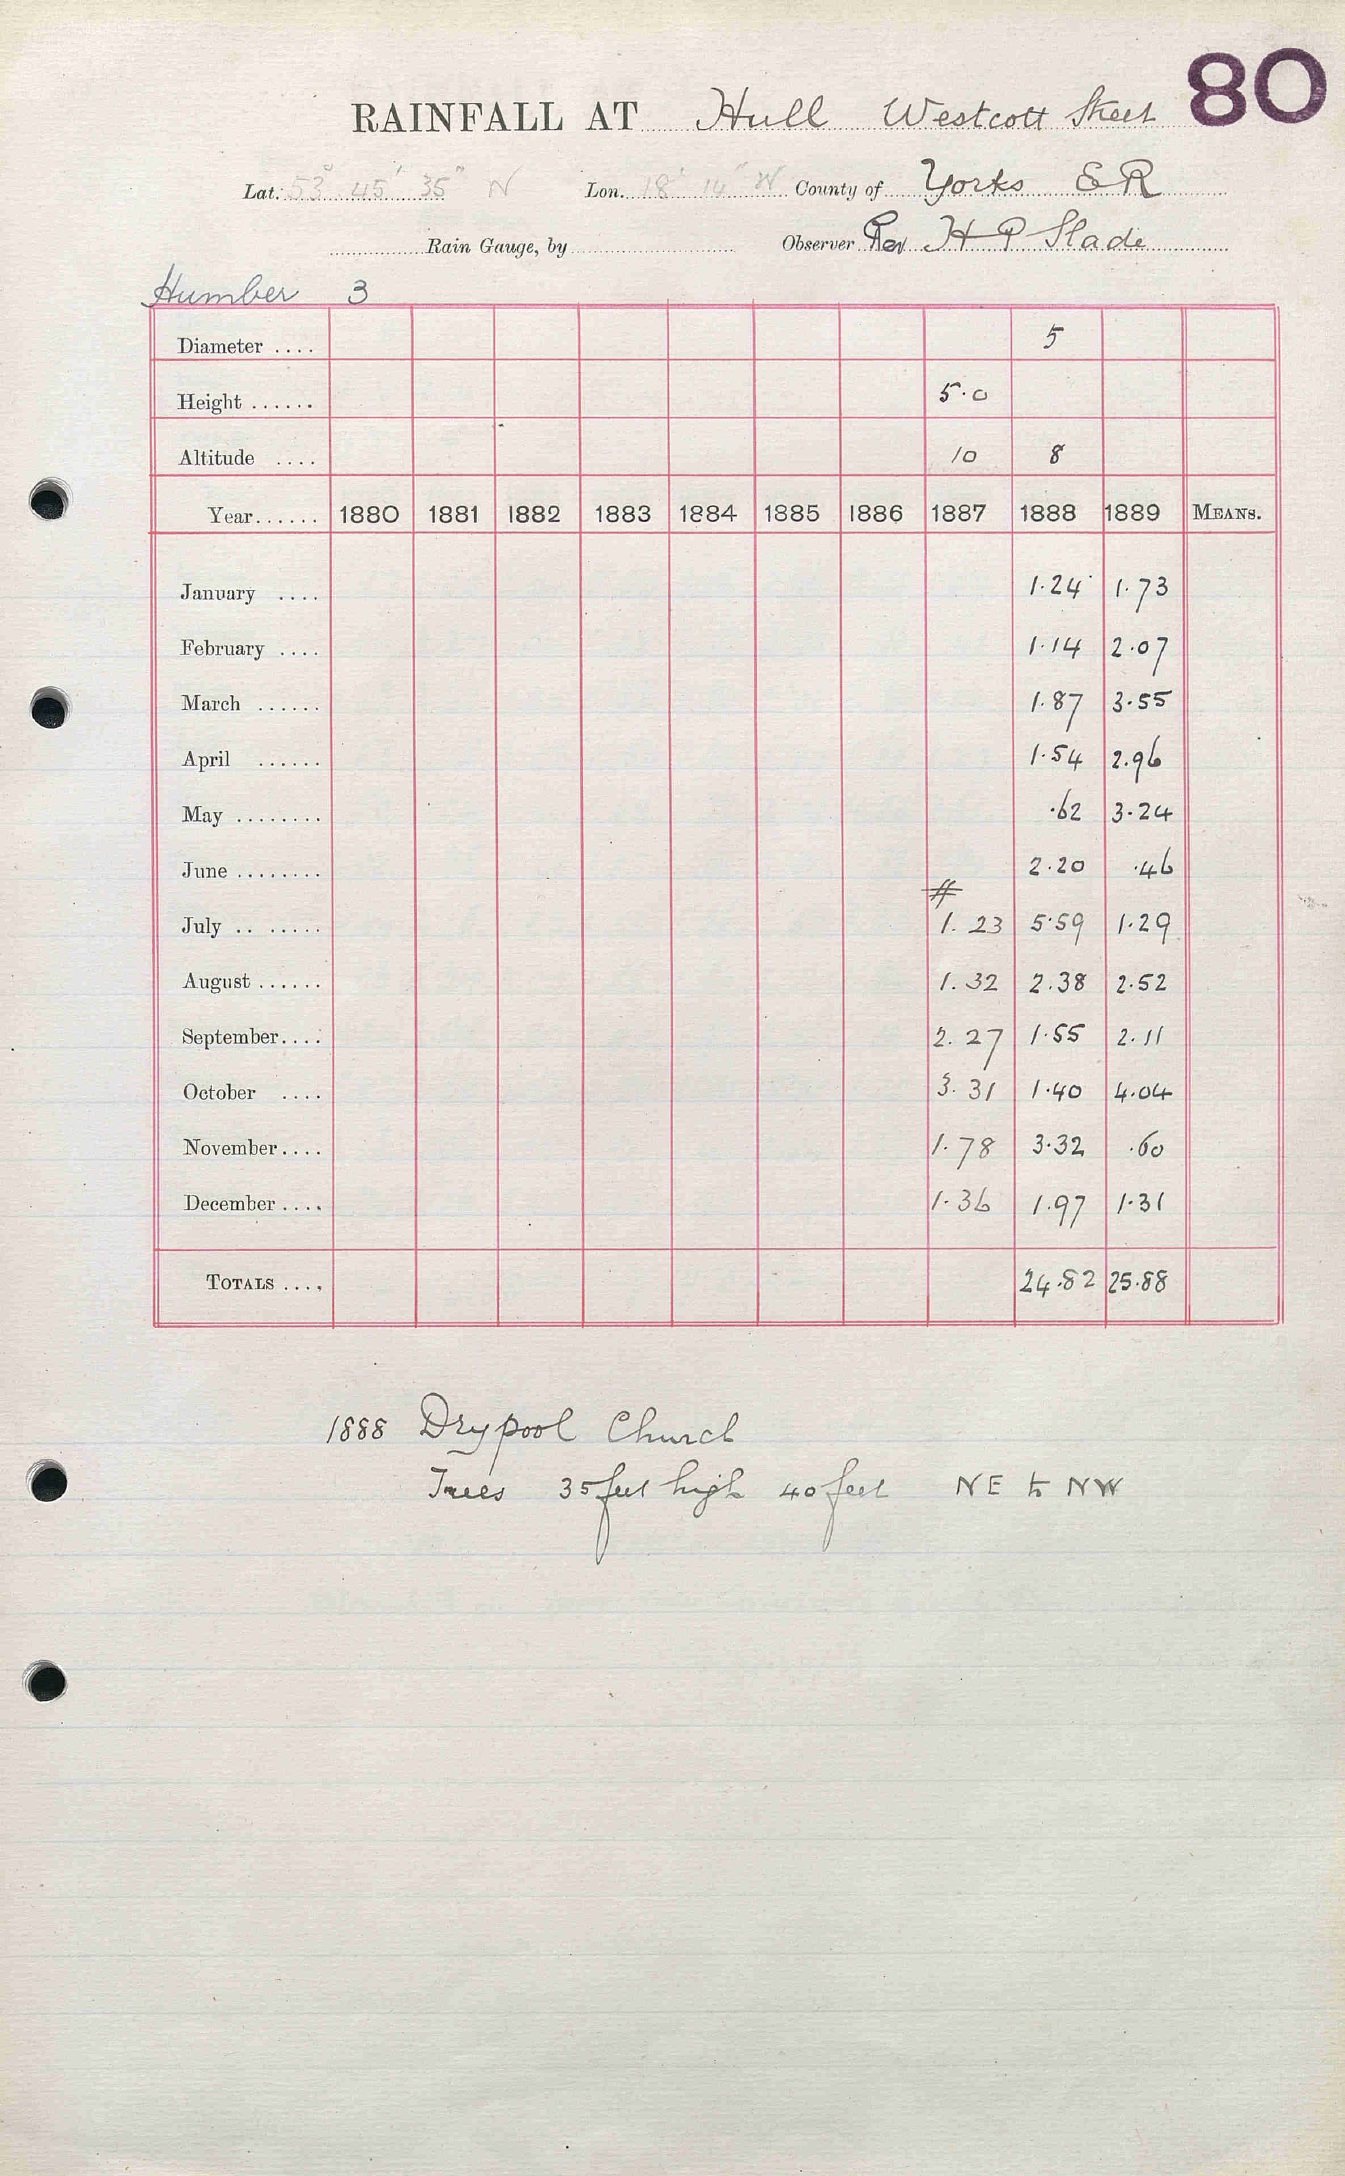 80
RAINFALL AT Hull Westcott Street
Lat. 53° 45' 35" N Lon. 18' 14" W County of Yorks ER
Rain Gauge, by Observer Rev H P Slade
Humber 3
Diameter .... 5
Height ...... 5.0
Altitude .... 10 8
Year...... 1880 1881 1882 1883 1884 1885 1886 1887 1888 1889 MEANS.
January .... 1.24 1.73
February .... 1.14 2.07
March ...... 1.87 3.55
April ...... 1.54 2.96
May ........ .62 3.24
June ........ 2.20 .46
July .. ..... 1.23 5.59 1.29
August ...... 1.32 2.38 2.52
September.... 2.27 1.55 2.11
October .... 3.31 1.40 4.04
November.... 1.78 3.32 .60
December .... 1.36 1.97 1.31
TOTALS .... 24.82 25.88
1888 Drypool Church
Trees 35 feet high 40 feet NE to NW